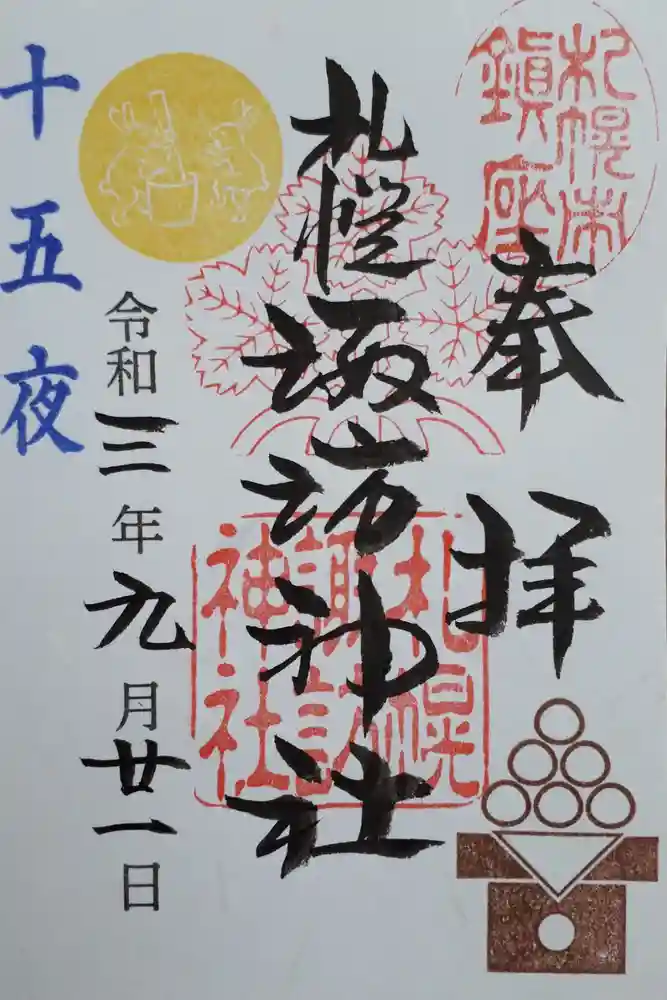 札幌市
鎮座
奉拝
札幌諏訪神社
札幌
諏訪
神社
令和三年九月廿一日
十五夜